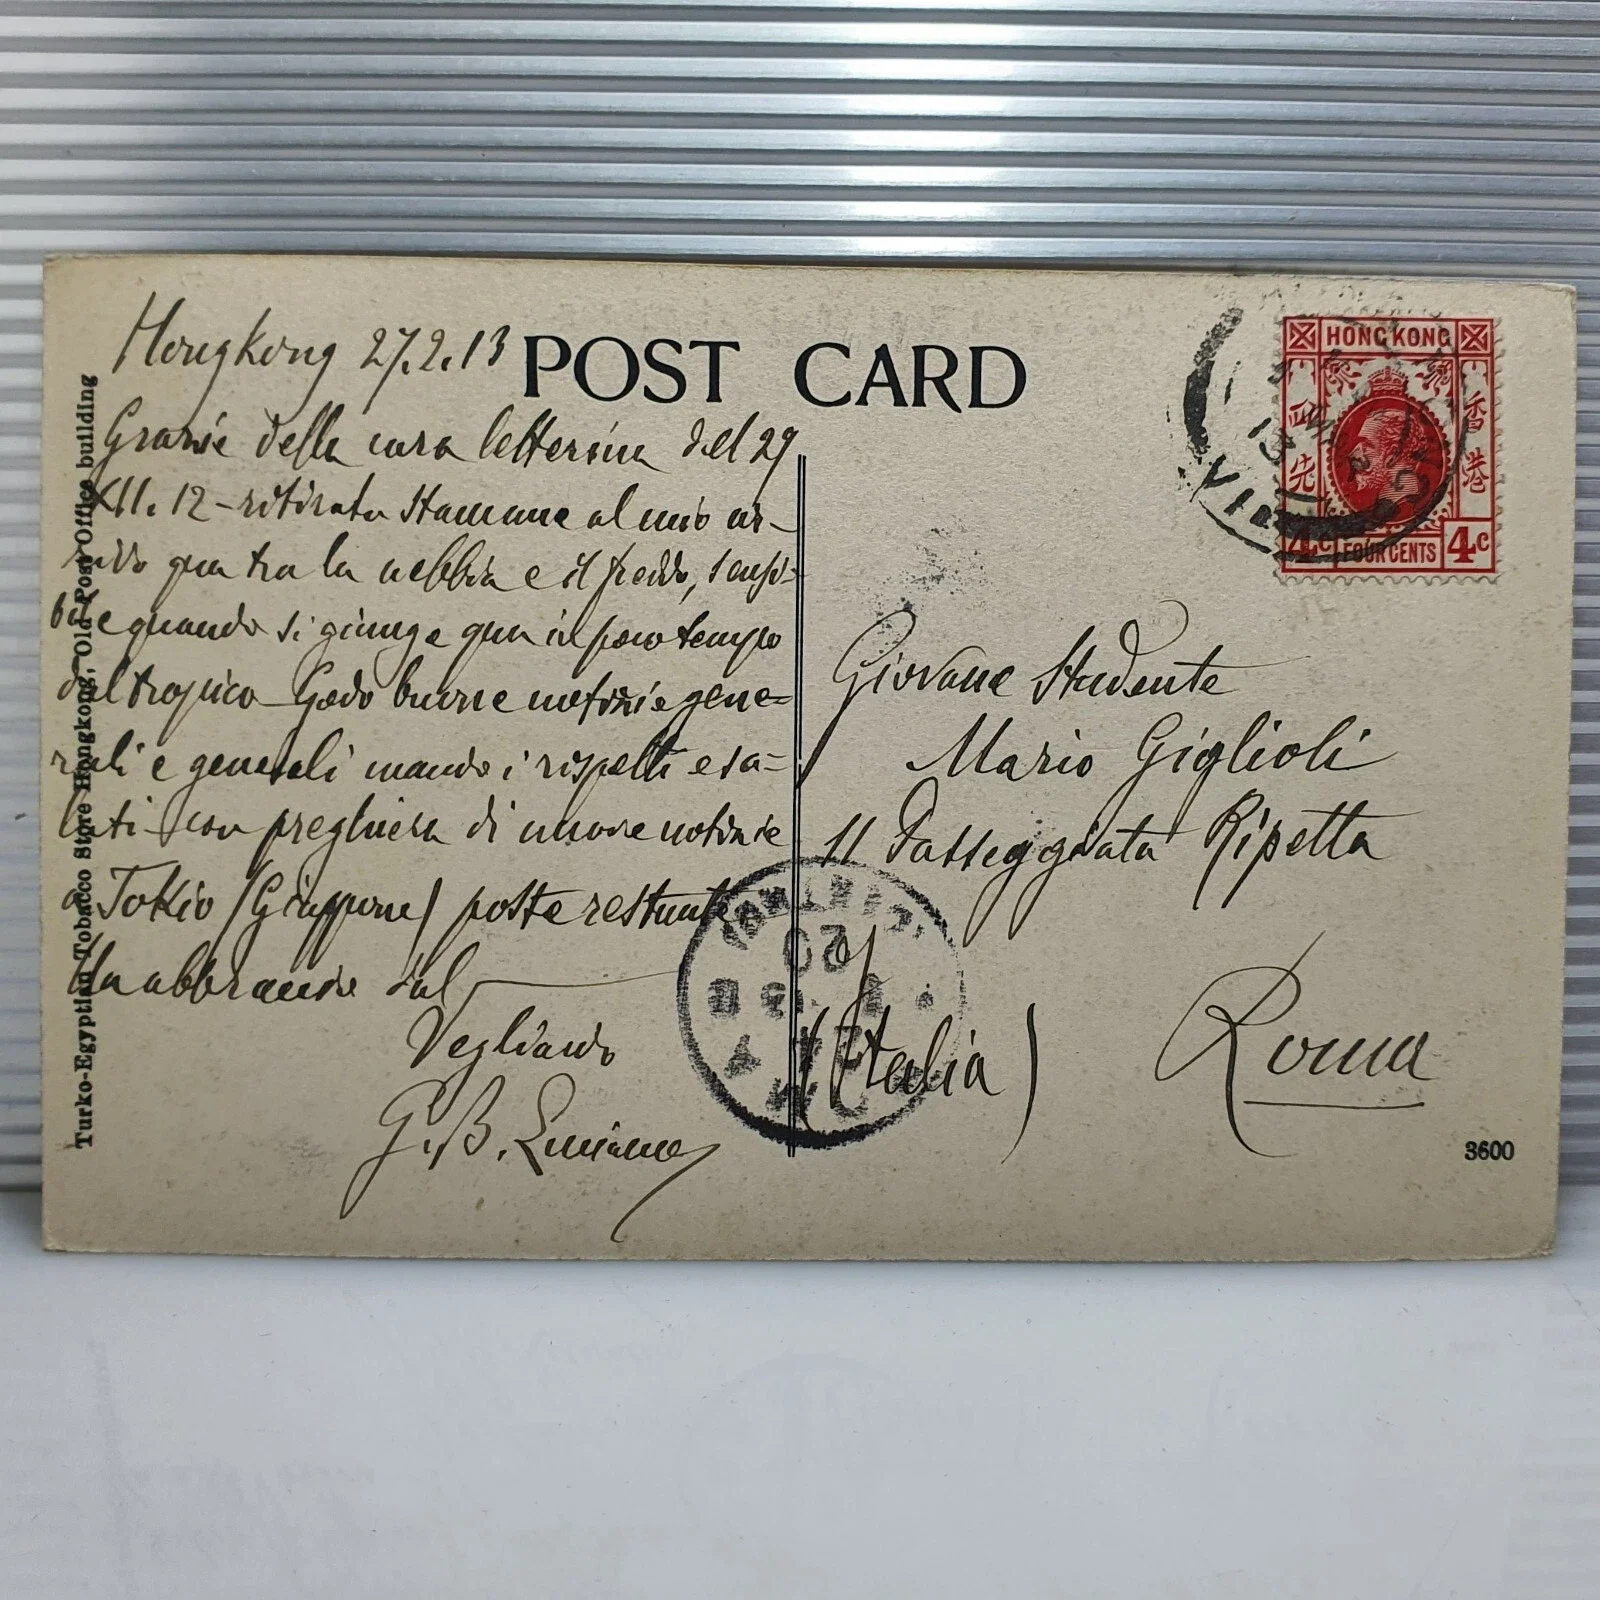 Hongkong 27.2.13
POST CARD
Grazie della cara letterina del 29
XII. 12 - ritirata stamane al mio ar-
rivo qua tra la nebbia e il freddo, sensi-
bile quando si giunge qua in poco tempo
dal tropico - Godo buone notizie gene-
rali e generali mando i rispetti e sa-
luti con preghiera di nuove notizie
a Tokio (Giappone) poste restante
Un abbraccio dal
Vegliardo
G. B.
Turko-Egyptian Tobacco Store Hongkong, Old Post Office building
HONG KONG
香港
4c FOUR CENTS 4c
VICTORIA
Giovane Studente
Mario Giglioli
11 Passeggiata Ripetta
Roma
(Italia)
3600